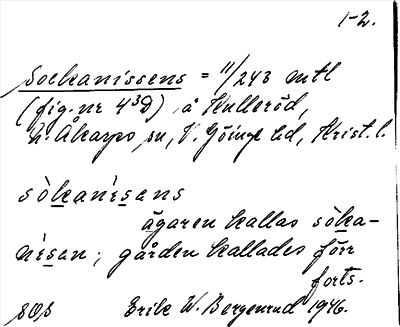 1-2.
Sockanissens = 11/243 mtl
(fig. nr 4³D) å Hulleröd,
N. Åkarps sn, V. Göinge hd, Krist. l.
sòkanìsans
ägaren kallas sòka-
nìsan; gården kallades förr
forts.
SOS Erik W. Bergenrud 1946.